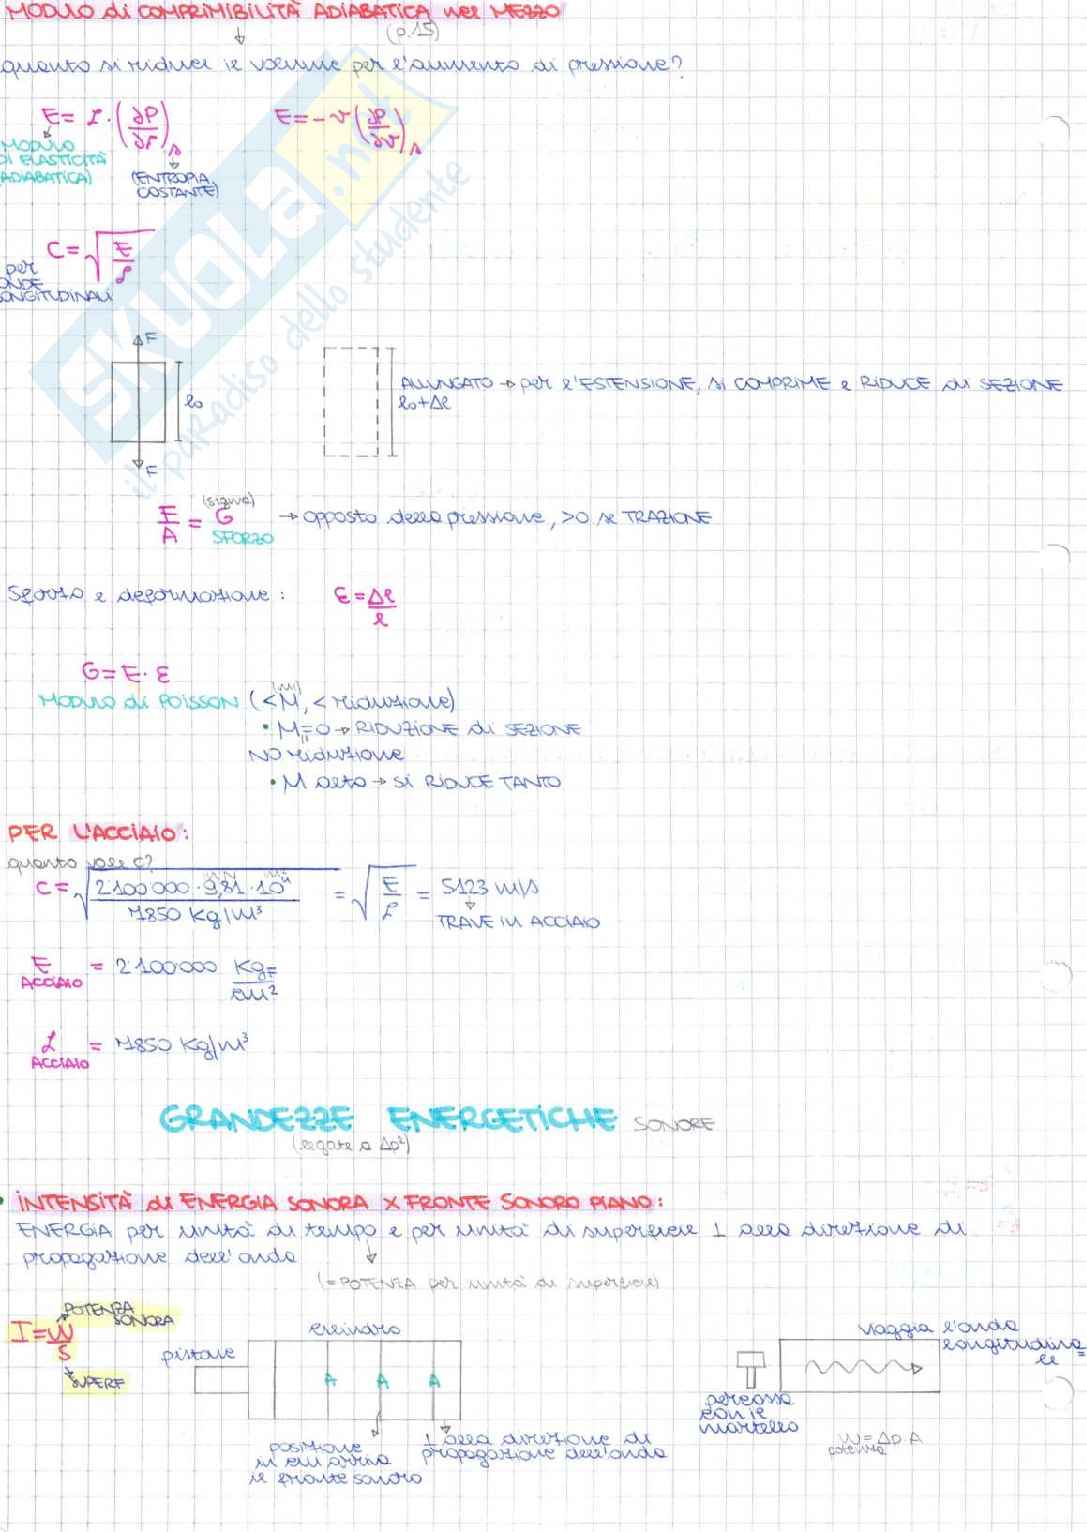 MODULO di COMPRIMIBILITÀ ADIABATICA nel MEZZO
(p.15)
quanto si riduce il volume per l'aumento di pressione?
E = ρ · (∂P/∂ρ)s
E = -v (∂P/∂v)s
MODULO
DI ELASTICITÀ
ADIABATICA)
(ENTROPIA
COSTANTE)
C = √(E/ρ)
per
ONDE
LONGITUDINALI
F
l₀
F
ALLUNGATO → per l'ESTENSIONE, si COMPRIME e RIDUCE di SEZIONE
l₀+Δl
(sigma)
F/A = σ → opposto della pressione, >0 se TRAZIONE
SFORZO
Sforzo e deformazione: ε = Δl/l
σ = E · ε
MODULO di POISSON (<M, < riduzione)
• M=0 → RIDUZIONE di SEZIONE
NO riduzione
• M alto → si RIDUCE TANTO
PER L'ACCIAIO:
quanto vale c?
C = √(2'100'000 · 9,81 · 10⁴ / 7850 Kg/m³) = √(E/ρ) = 5123 m/s
TRAVE IN ACCIAIO
E ACCIAIO = 2'100'000 KgF/cm²
ρ ACCIAIO = 7850 Kg/m³
GRANDEZZE ENERGETICHE SONORE
(legate a Δp²)
• INTENSITÀ di ENERGIA SONORA X FRONTE SONORO PIANO:
ENERGIA per unità di tempo e per unità di superficie ⊥ alla direzione di
propagazione dell'onda
(=POTENZA per unità di superficie)
I = W/S
POTENZA
SONORA
SUPERF
cilindro
pistone
A A A
posizione
in cui arriva
il fronte sonoro
⊥ alla direzione di
propagazione dell'onda
viaggia l'onda
longitudina=
le
percossa
con il
martello
W = Δp · A
potenza
SKUOLA.net
il paradiso dello studente